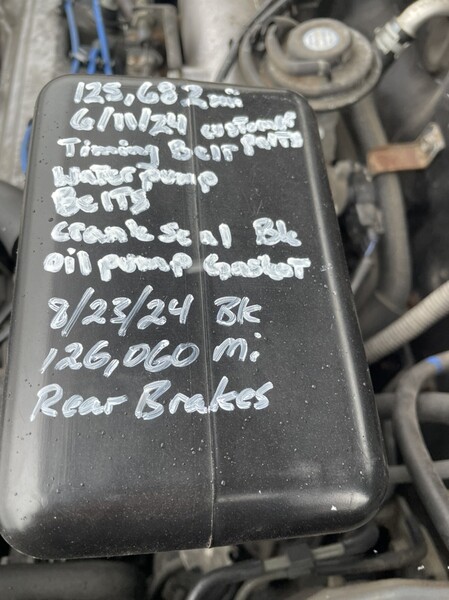 125,682 mi
6/11/24 customer
Timing Belt Parts
Water pump
Belts
Crank Seal Bk
oil pump Gasket
8/23/24 Bk
126,060 Mi
Rear Brakes